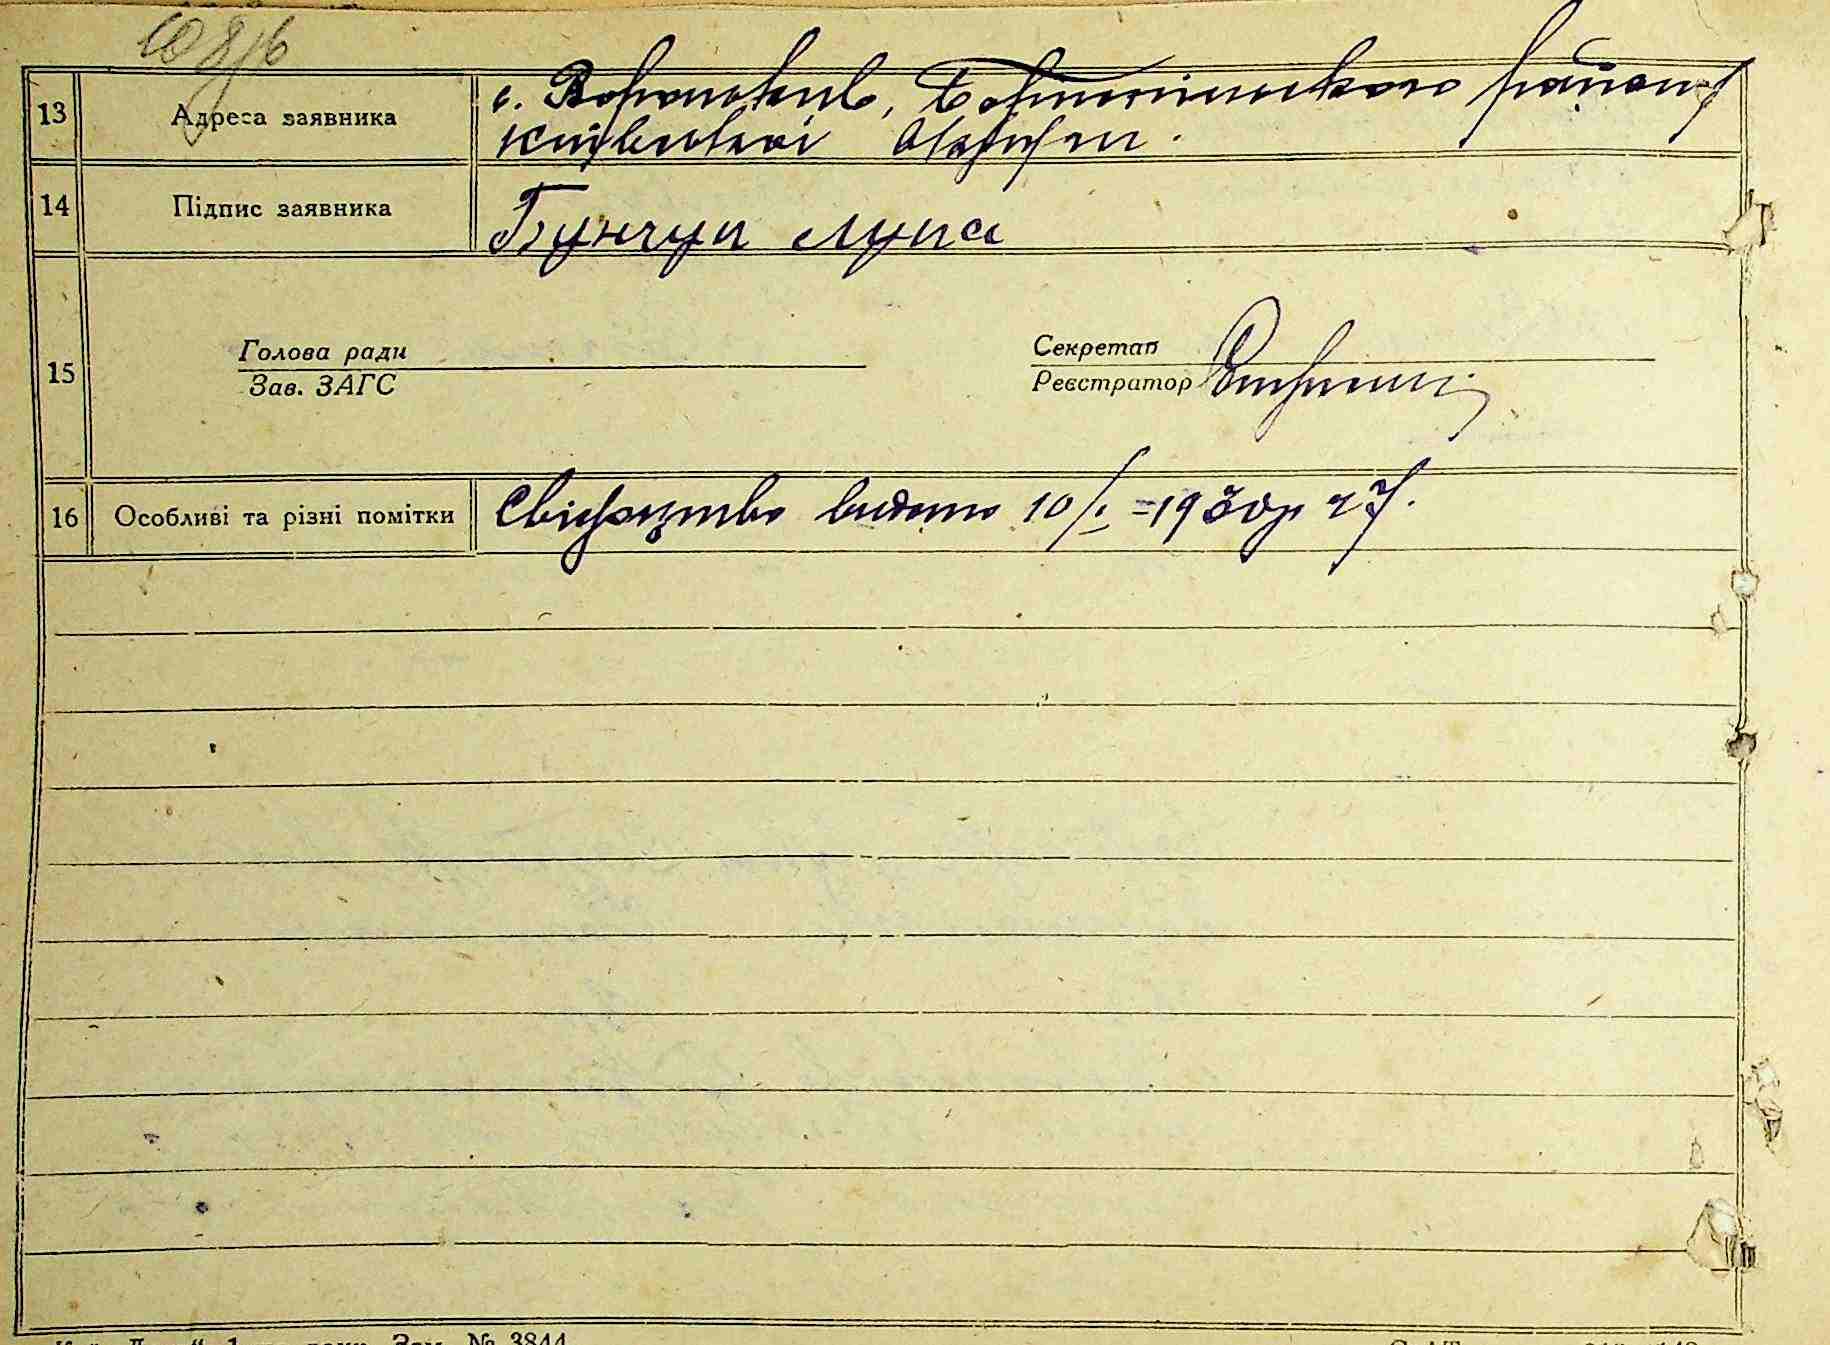 13 Адреса заявника с. Вороньків, Бориспільського району
Київської Округи.
14 Підпис заявника Бунчук Лука
15
Голова ради
Зав. ЗАГС
Секретар
Реєстратор
16 Особливі та різні помітки Свідоцтво видано 10/I-1930р ч 7.
Зам. № 3844